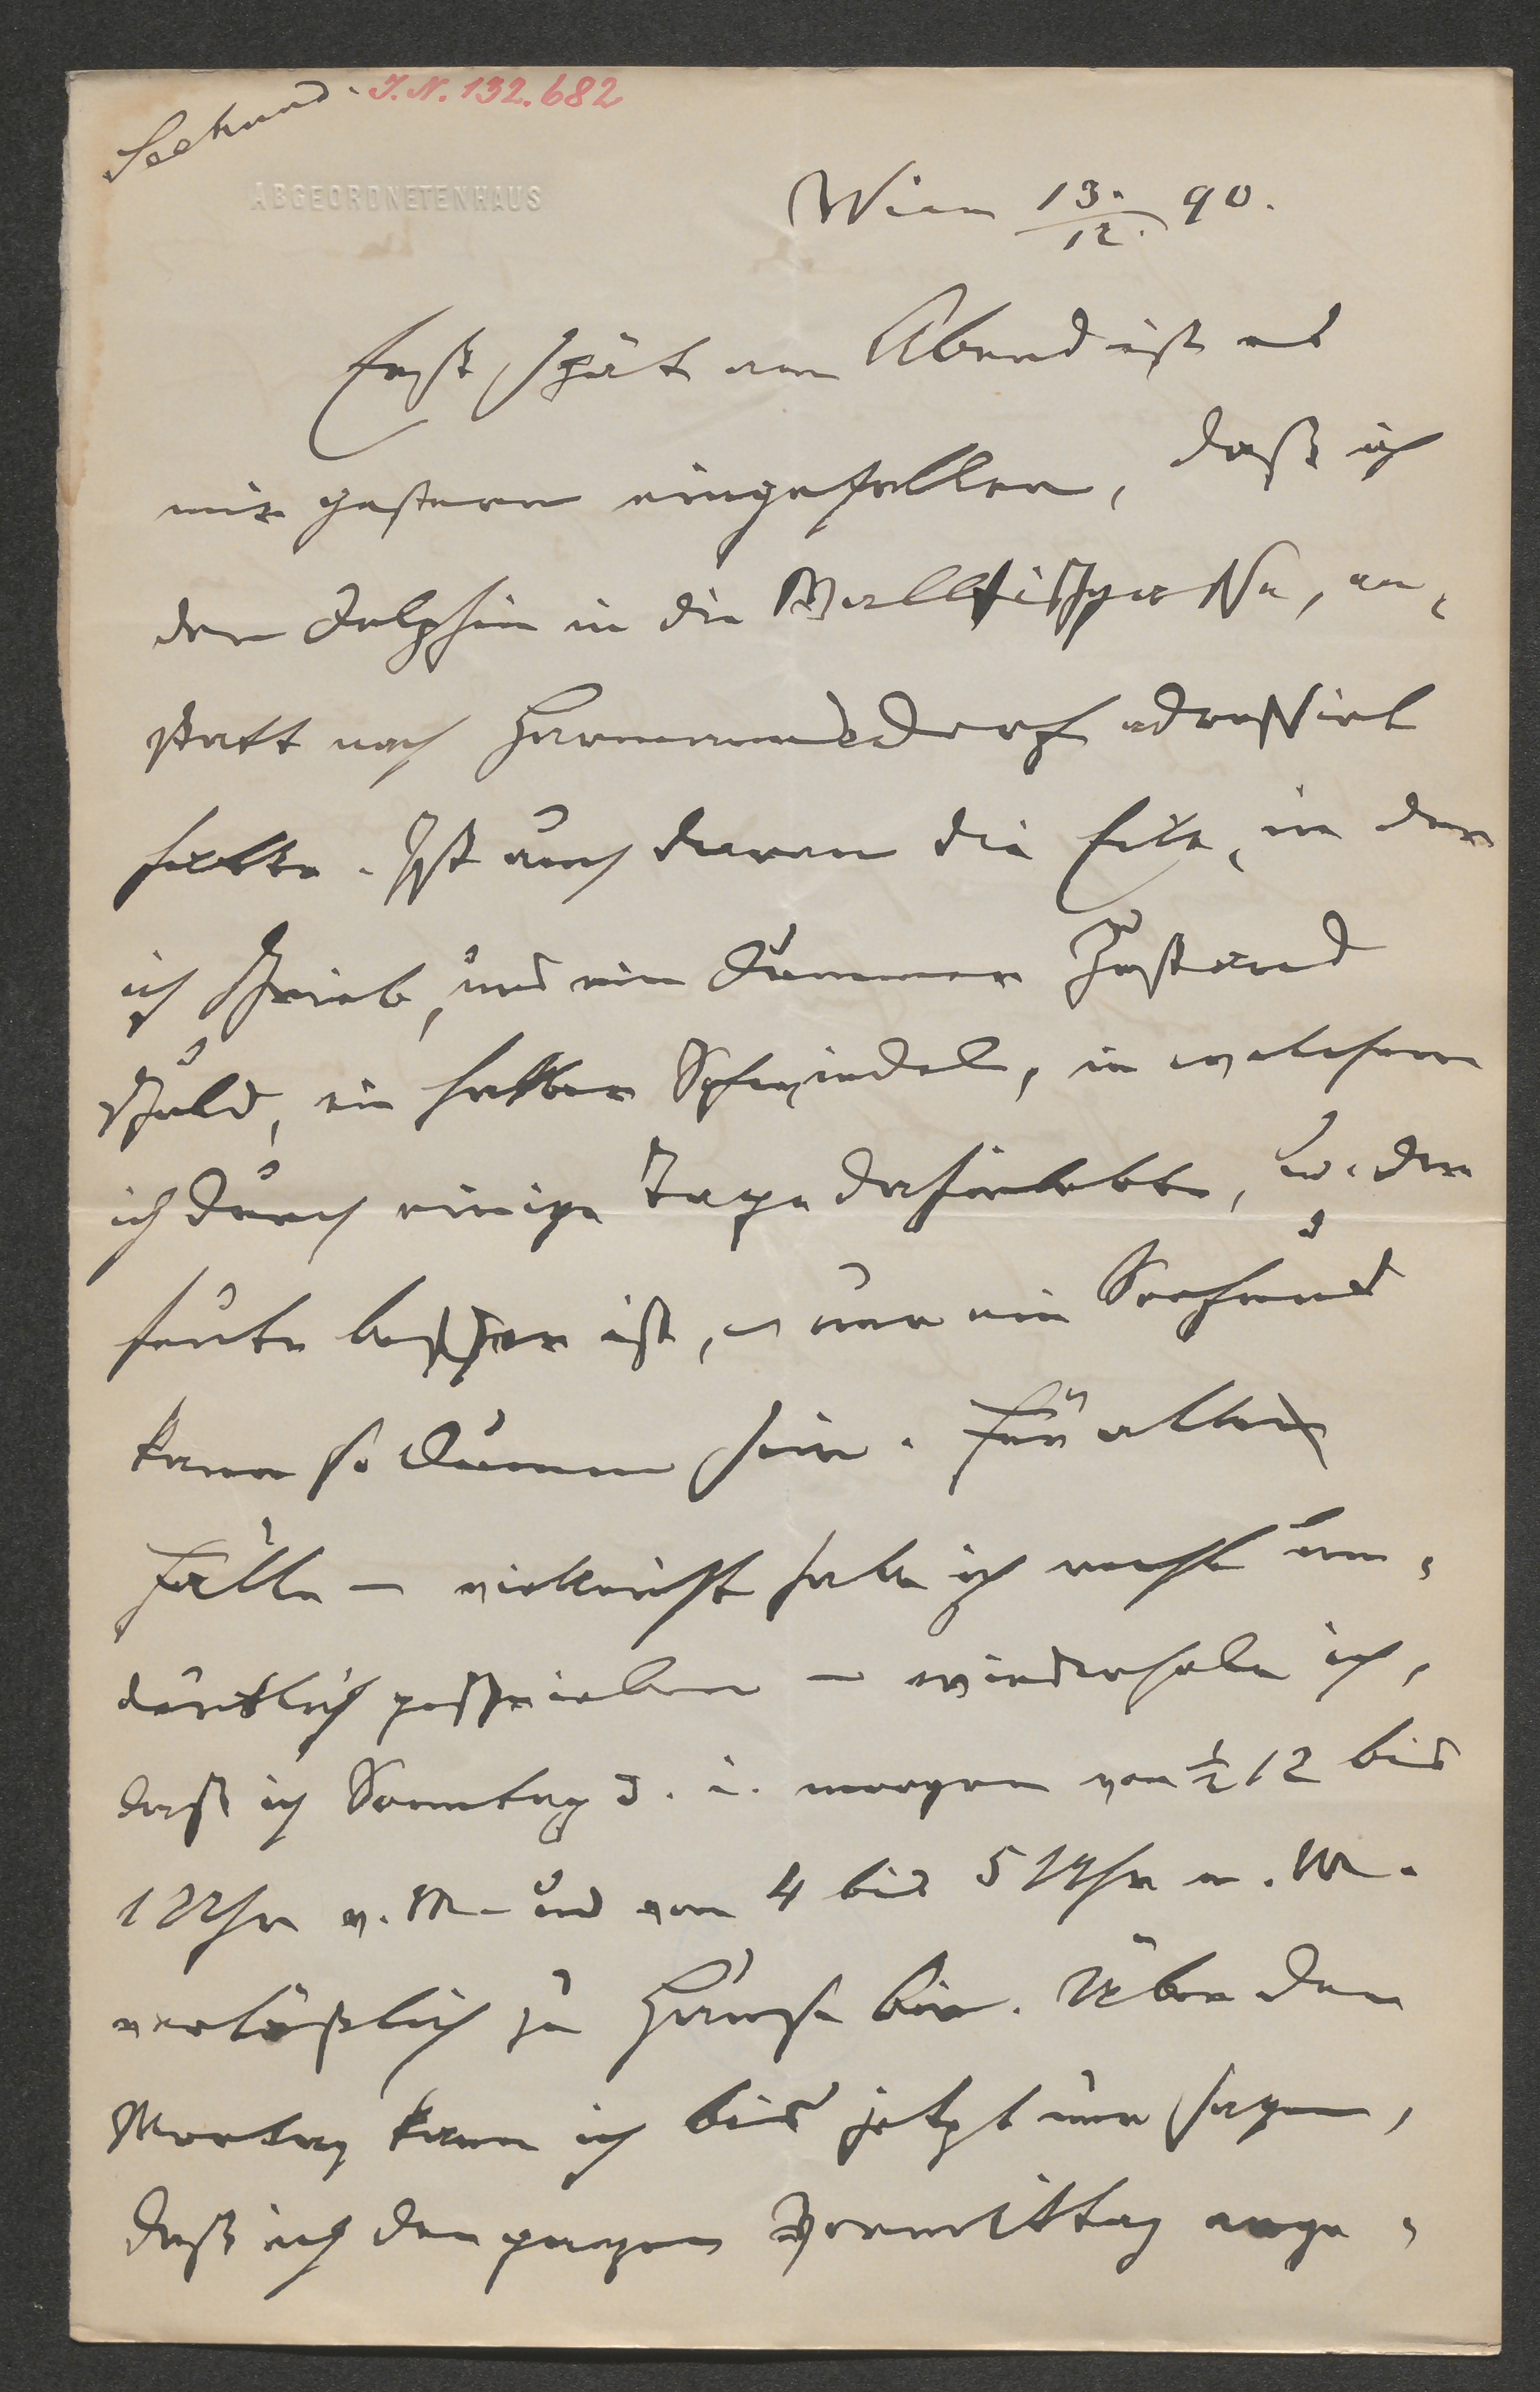 Seehund.
J.N. 132.682
ABGEORDNETENHAUS
Wien 13./12. 90.
Erst spät am Abend ist es
mir gestern eingefallen, daß ich
den Delphin in die Wallfischgasse, an-
statt nach Harmannsdorf adressirt
hatte. Ist auch daran die Eile, in der
ich schrieb, und ein dummer Zustand
schuld, ein halber Schwindel, in welchem
ich durch einige Tage dahinlebte, u. der
heute besser ist, – nur ein Seehund
kann so dumm sein. Für alle
Fälle – vielleicht habe ich recht un-
deutlich geschrieben – wiederhole ich,
daß ich Sonntag d. i. morgen von ½12 bis
1 Uhr v. M. und von 4 bis 5 Uhr n. M.
verläßlich zu Hause bin. Über den
Montag kann ich bis jetzt nur sagen,
daß ich den ganzen Vormittag ange-